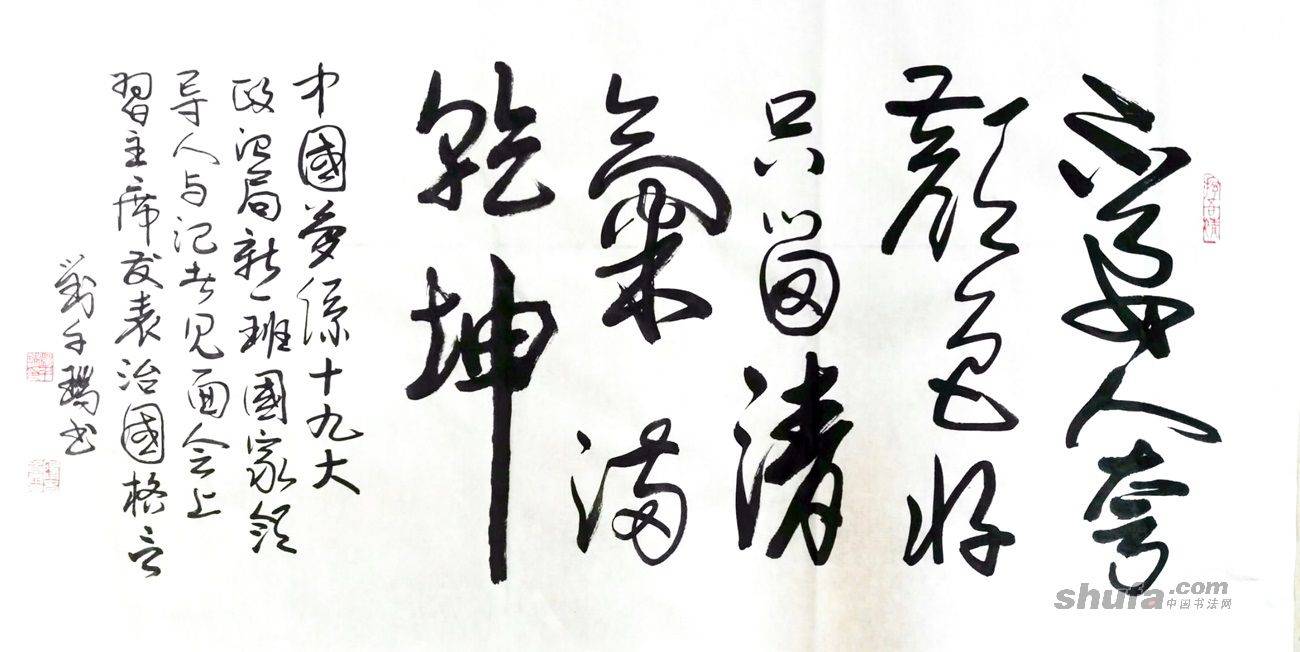 不要人夸
顏色好
只留清
氣滿
乾坤
中國夢係十九大
政治局新一班國家领
导人与记者见面会上
習主席发表治國格言
劉千书
shufa.com
中国书法网